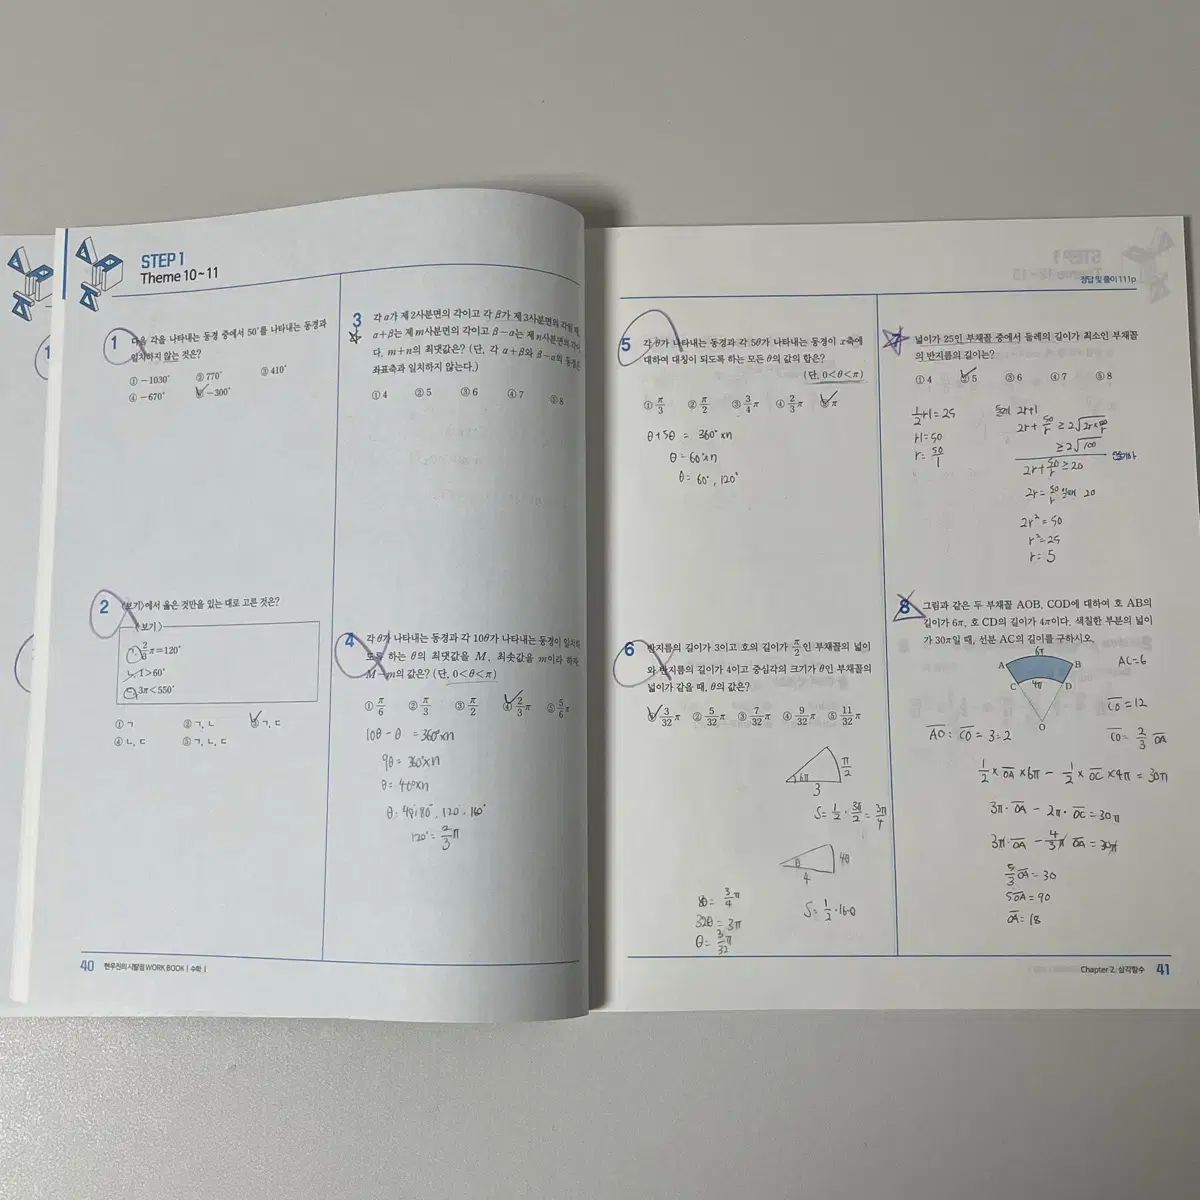 STEP 1
Theme 10~11
1
다음 각을 나타내는 동경 중에서 50°를 나타내는 동경과
일치하지 않는 것은?
① -1030° ② 770° ③ 410°
④ -670° ⑤ -300°
2
〈보기〉에서 옳은 것만을 있는 대로 고른 것은?
〈보기〉
ㄱ. 2/3 π=120°
ㄴ. 1>60°
ㄷ. 3π<550°
① ㄱ ② ㄱ, ㄴ ③ ㄱ, ㄷ
④ ㄴ, ㄷ ⑤ ㄱ, ㄴ, ㄷ
3
각 α가 제2사분면의 각이고 각 β가 제3사분면의 각일 때,
α+β는 제m사분면의 각이고 β-α는 제n사분면의
다. m+n의 최댓값은? (단, 각 α+β와 β-α의 동경은
좌표축과 일치하지 않는다.)
① 4 ② 5 ③ 6 ④ 7 ⑤ 8
4
각 θ가 나타내는 동경과 각 10θ가 나타내는 동경이 일치하
도록 하는 θ의 최댓값을 M, 최솟값을 m이라 하자.
M-m의 값은? (단, 0<θ<π)
① π/6 ② π/3 ③ π/2 ④ 2/3 π ⑤ 5/6 π
10θ-θ = 360°×n
9θ = 360°×n
θ = 40°×n
120° = 2/3 π
40 현우진의 시발점 WORK BOOK | 수학 I
정답 및 풀이 111p
5
각 θ가 나타내는 동경과 각 5θ가 나타내는 동경이 x축에
대하여 대칭이 되도록 하는 모든 θ의 값의 합은?
(단, 0<θ<π)
① π/3 ② π/2 ③ 3/4 π ④ 2/3 π ⑤ π
θ+5θ = 360°×n
θ = 60°×n
θ = 60°, 120°
6
반지름의 길이가 3이고 호의 길이가 π/2인 부채꼴의 넓이
와 반지름의 길이가 4이고 중심각의 크기가 θ인 부채꼴의
넓이가 같을 때, θ의 값은?
① 3/32 π ② 5/32 π ③ 7/32 π ④ 9/32 π ⑤ 11/32 π
π/2
3
S = 1/2 · 3π/2 = 3π/4
θ 4θ
4
S = 1/2 · 16θ
8θ = 3/4 π
32θ = 3π
θ = 3/32 π
7
넓이가 25인 부채꼴 중에서 둘레의 길이가 최소인 부채꼴
의 반지름의 길이는?
① 4 ② 5 ③ 6 ④ 7 ⑤ 8
1/2 rl = 25
rl = 50
r = 50/l
둘레 2r+l
2r + 50/r ≥ 2√(2r×50/r)
≥ 2√100
2r + 50/r ≥ 20
2r = 50/r 일때 20
2r² = 50
r² = 25
r = 5
8
그림과 같은 두 부채꼴 AOB, COD에 대하여 호 AB의
길이가 6π, 호 CD의 길이가 4π이다. 색칠한 부분의 넓이
가 30π일 때, 선분 AC의 길이를 구하시오.
6π
A B
C 4π D
O
AC=6
CO = 12
CO = 2/3 OA
AO : CO = 3 : 2
1/2 × OA × 6π - 1/2 × OC × 4π = 30π
3π · OA - 2π · OC = 30π
3π · OA - 4/3 π OA = 30π
5/3 OA = 30
5OA = 90
OA = 18
Chapter 2. 삼각함수 41